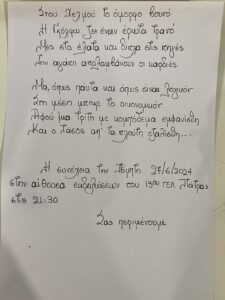 Στου Χελμού το όμορφο βουνό
Η Γκόλφω ζει έναν έρωτα τρανό
Μες στα έλατα και δίπλα στις πηγές
Την αγάπη απολαμβάνουν οι καρδιές.
Μα, όπως πάντα και όπως είναι λογικό
Στη μέση μπήκε το οικονομικό
Αφού μια τρίτη με κομπόδεμα εμφανίσθη
Και ο Τάσος απ' τα πλούτη εζαλίσθη...
Η συνέχεια την Πέμπτη 27/6/2024
στην αίθουσα εκδηλώσεων του 13ου ΓΕΛ Πάτρας
στις 21:30
Σας περιμένουμε